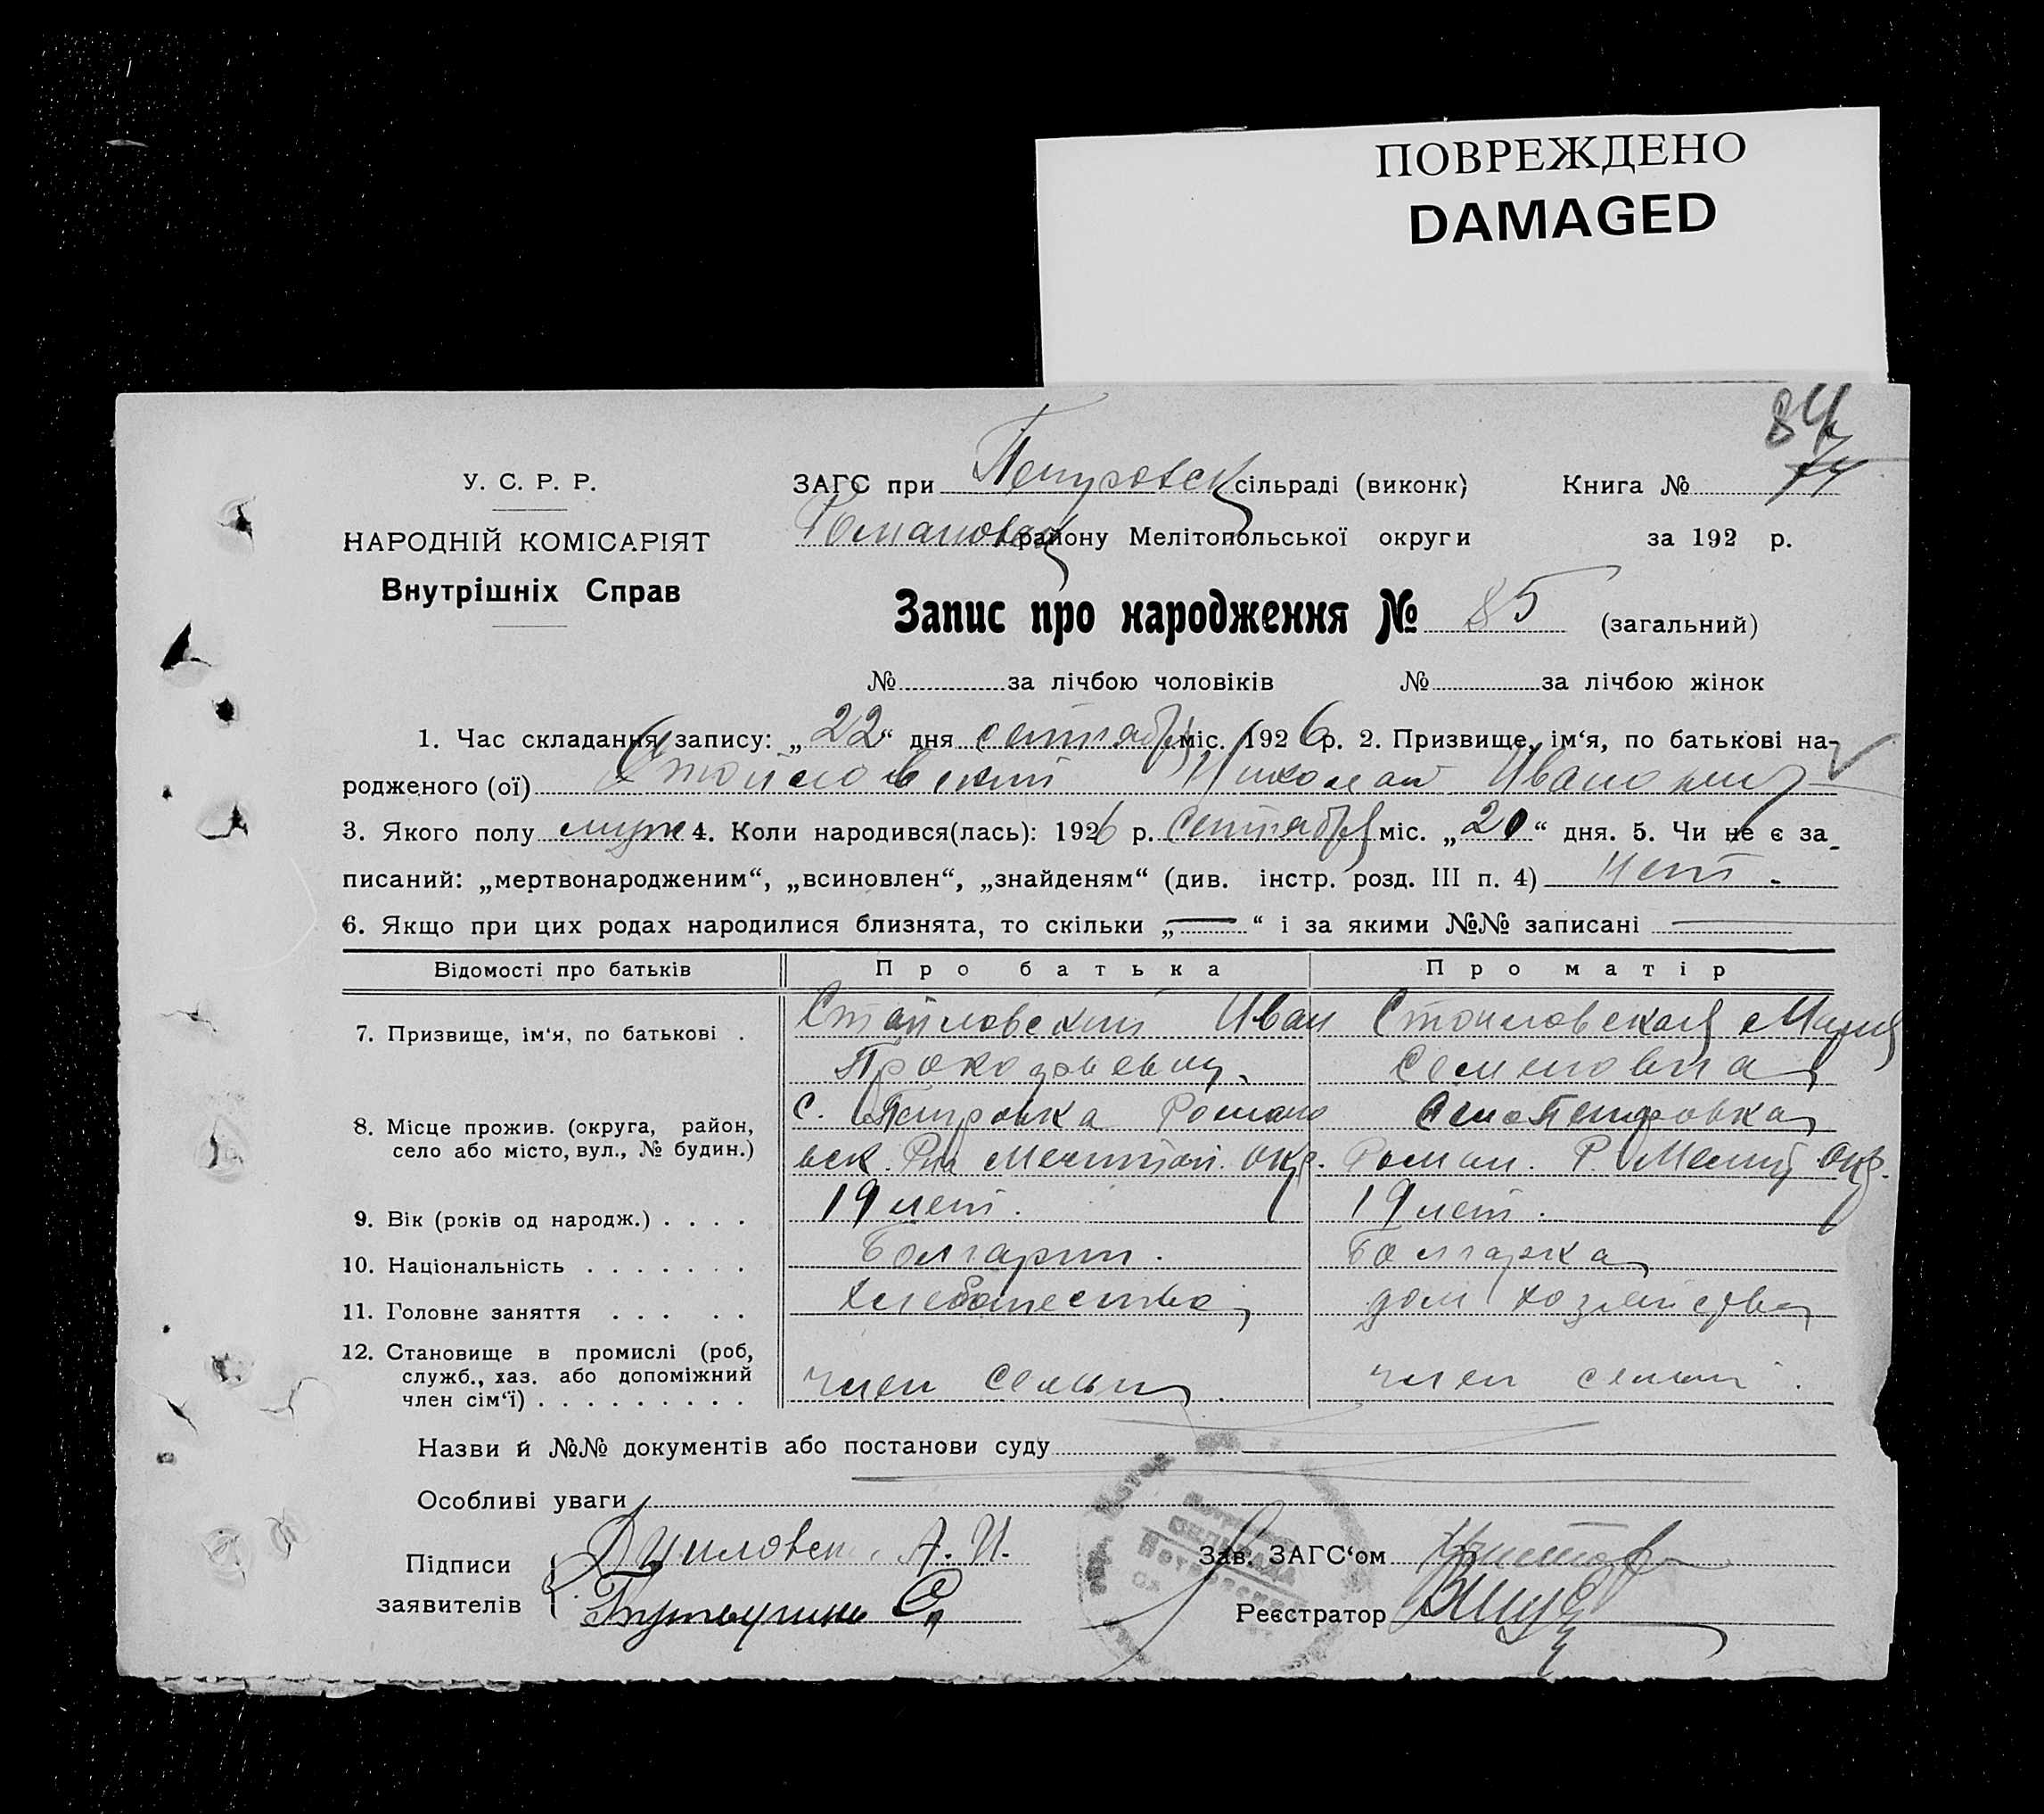 ПОВРЕЖДЕНО
DAMAGED
84
У. С. Р. Р.
НАРОДНІЙ КОМІСАРІЯТ
Внутрішніх Справ
ЗАГС при Петровск сільраді (виконк) Книга №
Романовск району Мелітопольської округи за 192 р.
Запис про народження № 85 (загальний)
№ за лічбою чоловіків № за лічбою жінок
1. Час складання запису: „22“ дня сентября міс. 1926 р. 2. Призвище, ім‘я, по батькові на-
родженого (ої) Стойловский Николай Иванович
3. Якого полу муж 4. Коли народився(лась): 1926 р. сентября міс. „20“ дня. 5. Чи не є за-
писаний: „мертвонародженим“, „всиновлен“, „знайденям“ (див. інстр. розд. III п. 4) нет.
6. Якщо при цих родах народилися близнята, то скільки „—“ і за якими №№ записані —
Відомості про батьків Про батька Про матір
7. Призвище, ім‘я, по батькові . Стойловский Иван Стоиловская Мария
Семеновна
8. Місце прожив. (округа, район, село або місто, вул., № будин.) с. Петровка Романо Петровка
вск. Рна Мелитоп. Окр. Роман. Р. Мелит Окр.
9. Вік (років од народж.) . . . . 19 лет. 19 лет.
10. Національність . . . . . . . Болгарин. Болгарка
11. Головне заняття . . . . . хлебопашество дом хозяйство
12. Становище в промислі (роб, служб., хаз. або допоміжний член сім‘ї) . . . . . . . . . член семьи. член семьи.
Назви й №№ документів або постанови суду
Особливі уваги
Підписи А. И. Зав. ЗАГС‘ом
заявителів С. Реєстратор